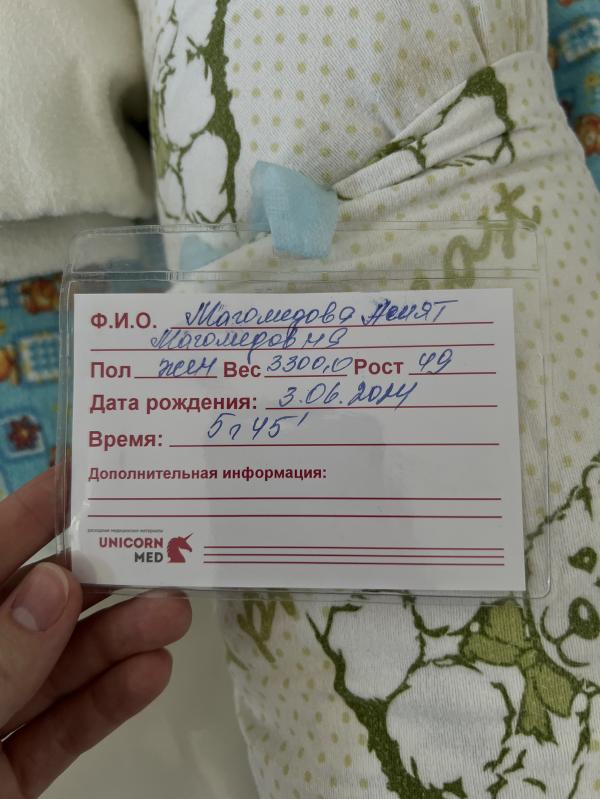 Ф.И.О. Магомедова
Магомедовна
Пол жен Вес 3300,0 Рост 49
Дата рождения: 3.06.2024
Время: 5ч 45'
Дополнительная информация:
расходные медицинские материалы
UNICORN
MED